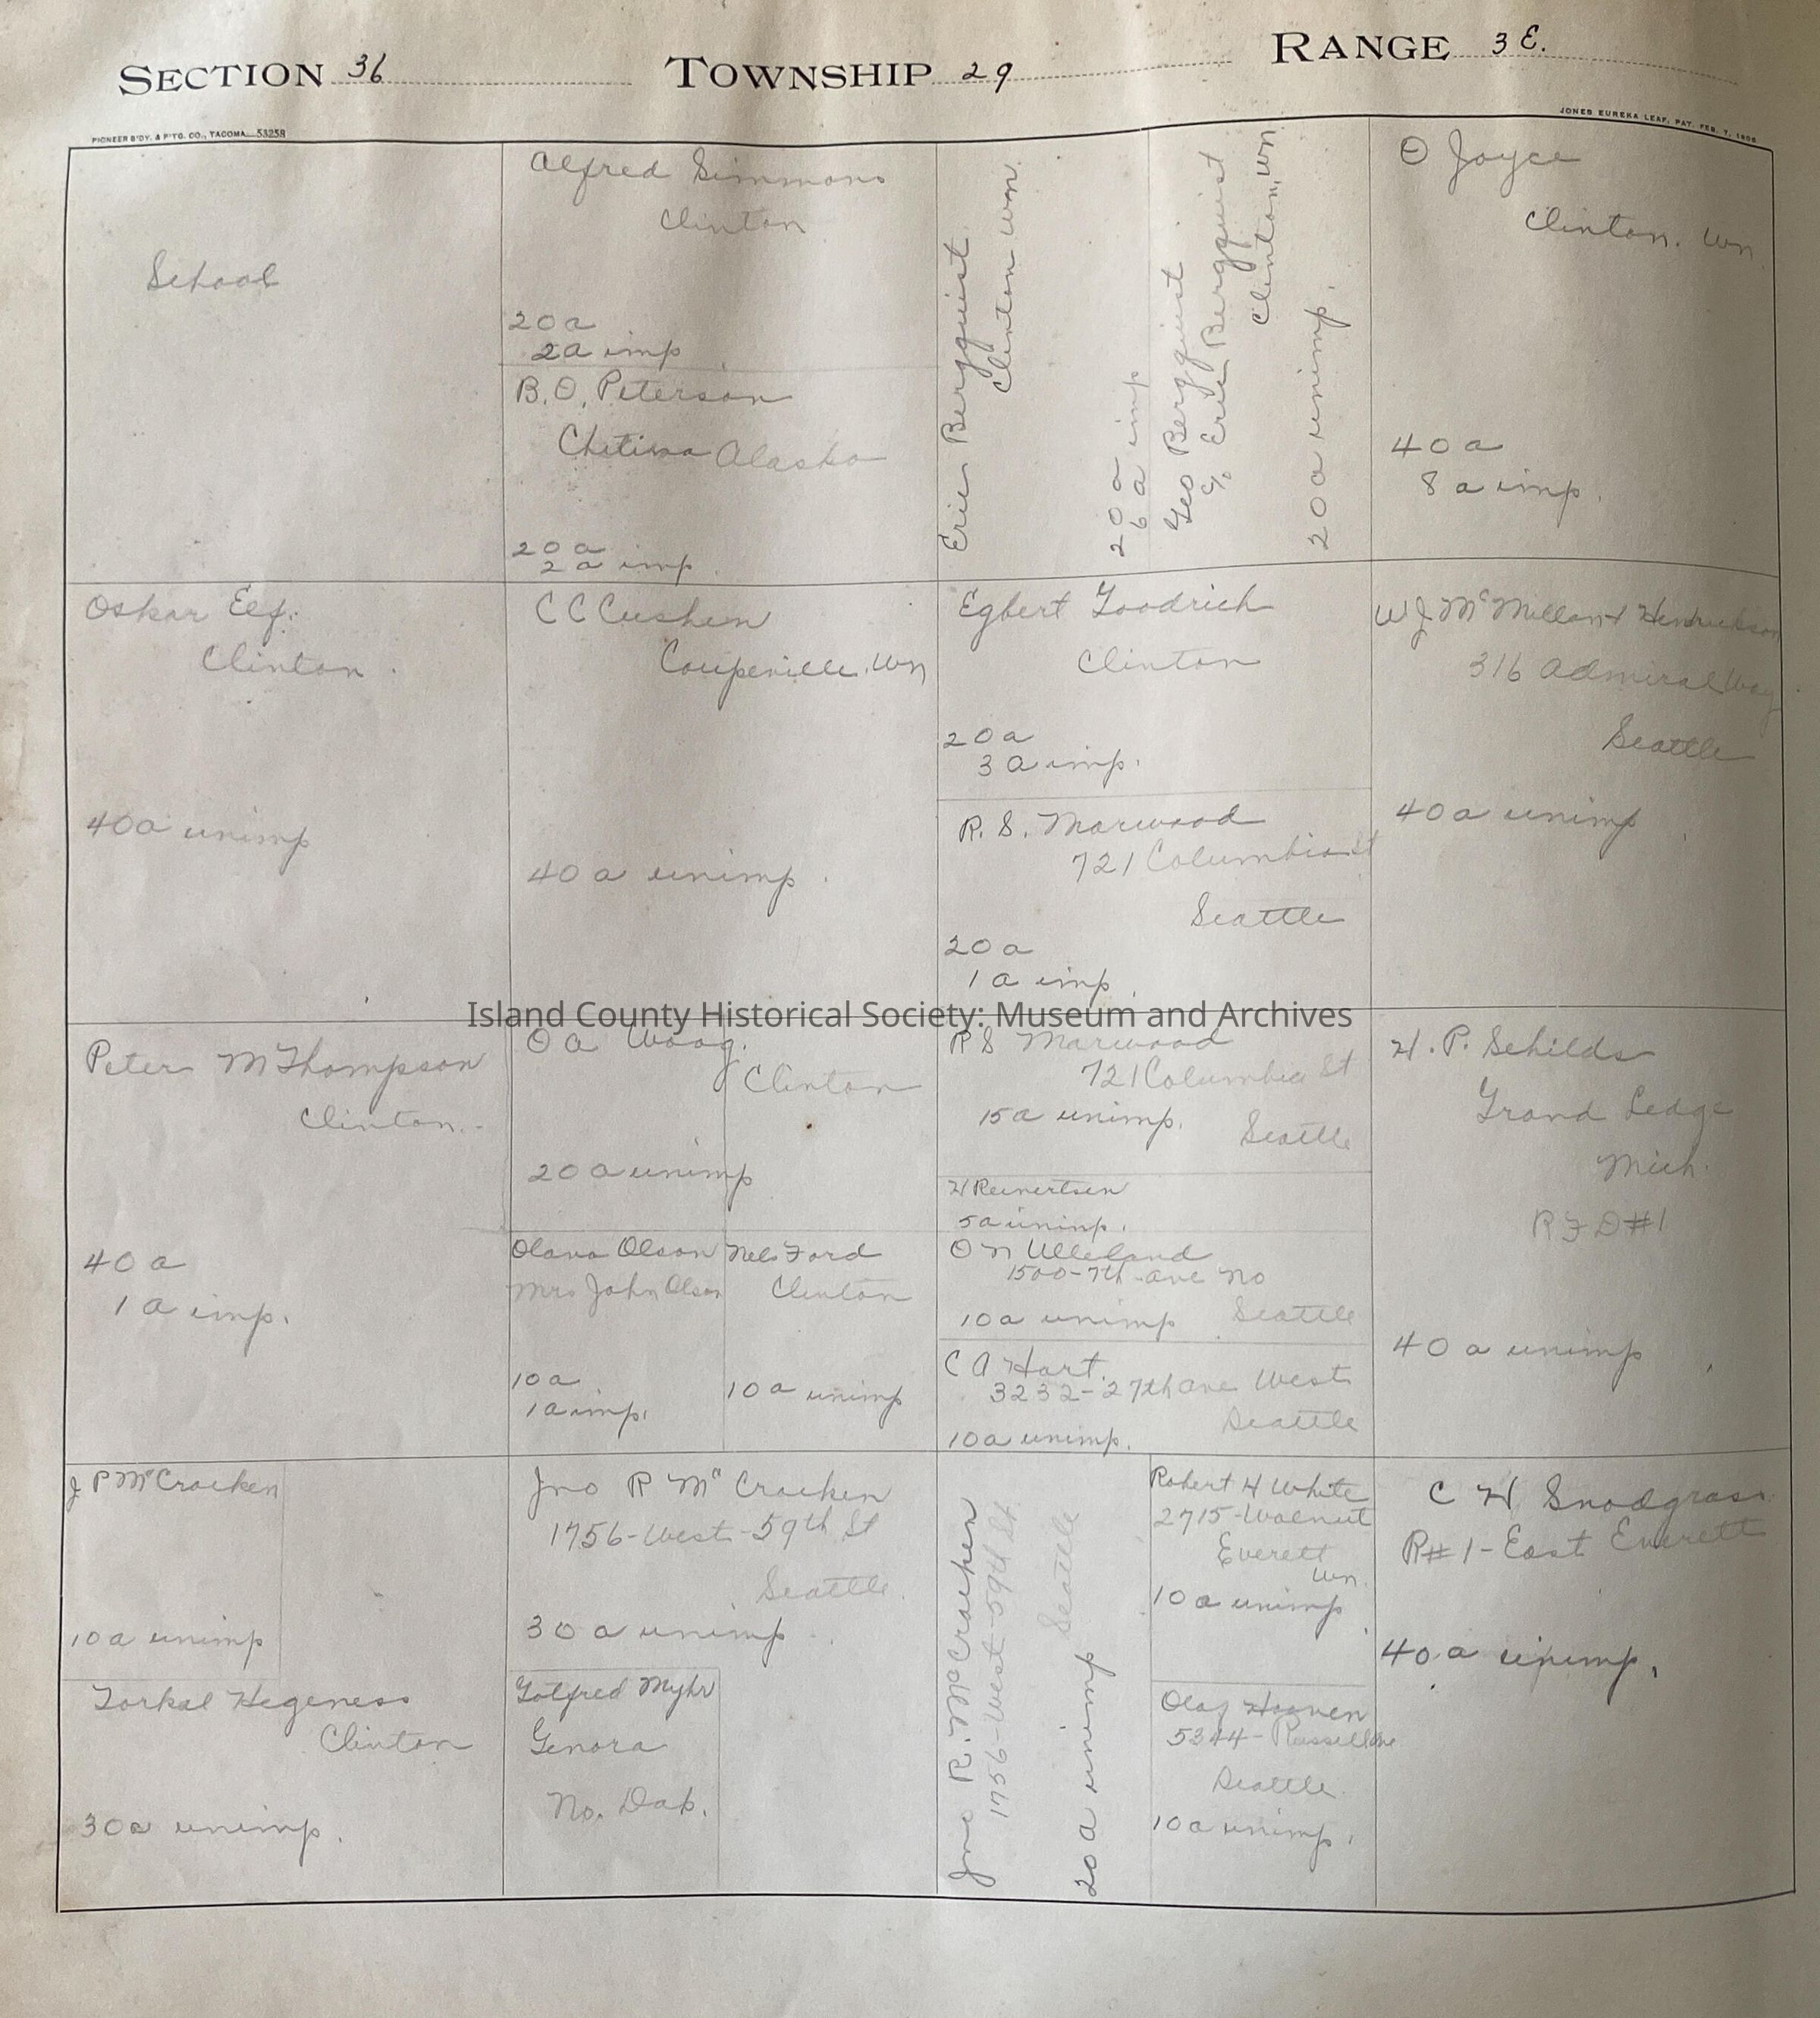 SECTION 36 TOWNSHIP 29 RANGE 3 E.
PIONEER B'DY. & P'TG. CO., TACOMA 53258
JONES EUREKA LEAF, PAT. FEB. 7, 1905
School
Alfred Simmons
Clinton
20 a
2 a imp
B. O. Peterson
Chitina Alaska
20 a
2 a imp
Eric Bergquist
Clinton Wn.
20 a
6 a imp
Geo Bergquist
% Eric Bergquist
Clinton, Wn
20 a unimp.
O Joyce
Clinton. Wn
40 a
8 a imp.
Oskar Elf.
Clinton
40 a unimp
C C Cushen
Coupeville, Wn
40 a unimp.
Egbert Goodrich
Clinton
20 a
3 a imp.
R. S. Marwood
721 Columbia St
Seattle
20 a
1 a imp.
W J McMillan + Henrickson
316 Admiral Way
Seattle
40 a unimp
Island County Historical Society: Museum and Archives
Peter M Thompson
Clinton.
40 a
1 a imp.
O A Woog.
Clinton
20 a unimp
Olava Olson
Mrs John Olson
10 a
1 a imp.
Nels Ford
Clinton
10 a unimp
R S Marwood
721 Columbia St
15 a unimp.
Seattle
H Reinertsen
5 a unimp.
O N Ulleland
1500-7th ave No
10 a unimp Seattle
C A Hart.
3232-27th ave West
Seattle
10 a unimp.
H. P. Schilds
Grand Ledge
Mich.
R F D #1
40 a unimp
J P McCracken
10 a unimp
Torkal Hegeness
Clinton
30 a unimp.
Jno R McCracken
1756-West-59th St
Seattle
30 a unimp
Gotfred Myhr
Genora
No. Dak.
Jno R. McCracken
1756-West-59th St.
Seattle
20 a unimp
Robert H White
2715-Walnut
Everett
Wn.
10 a unimp
Olaf
5344-Russell Ave
Seattle
10 a unimp.
C H Snodgrass
R#1-East Everett
40 a unimp.